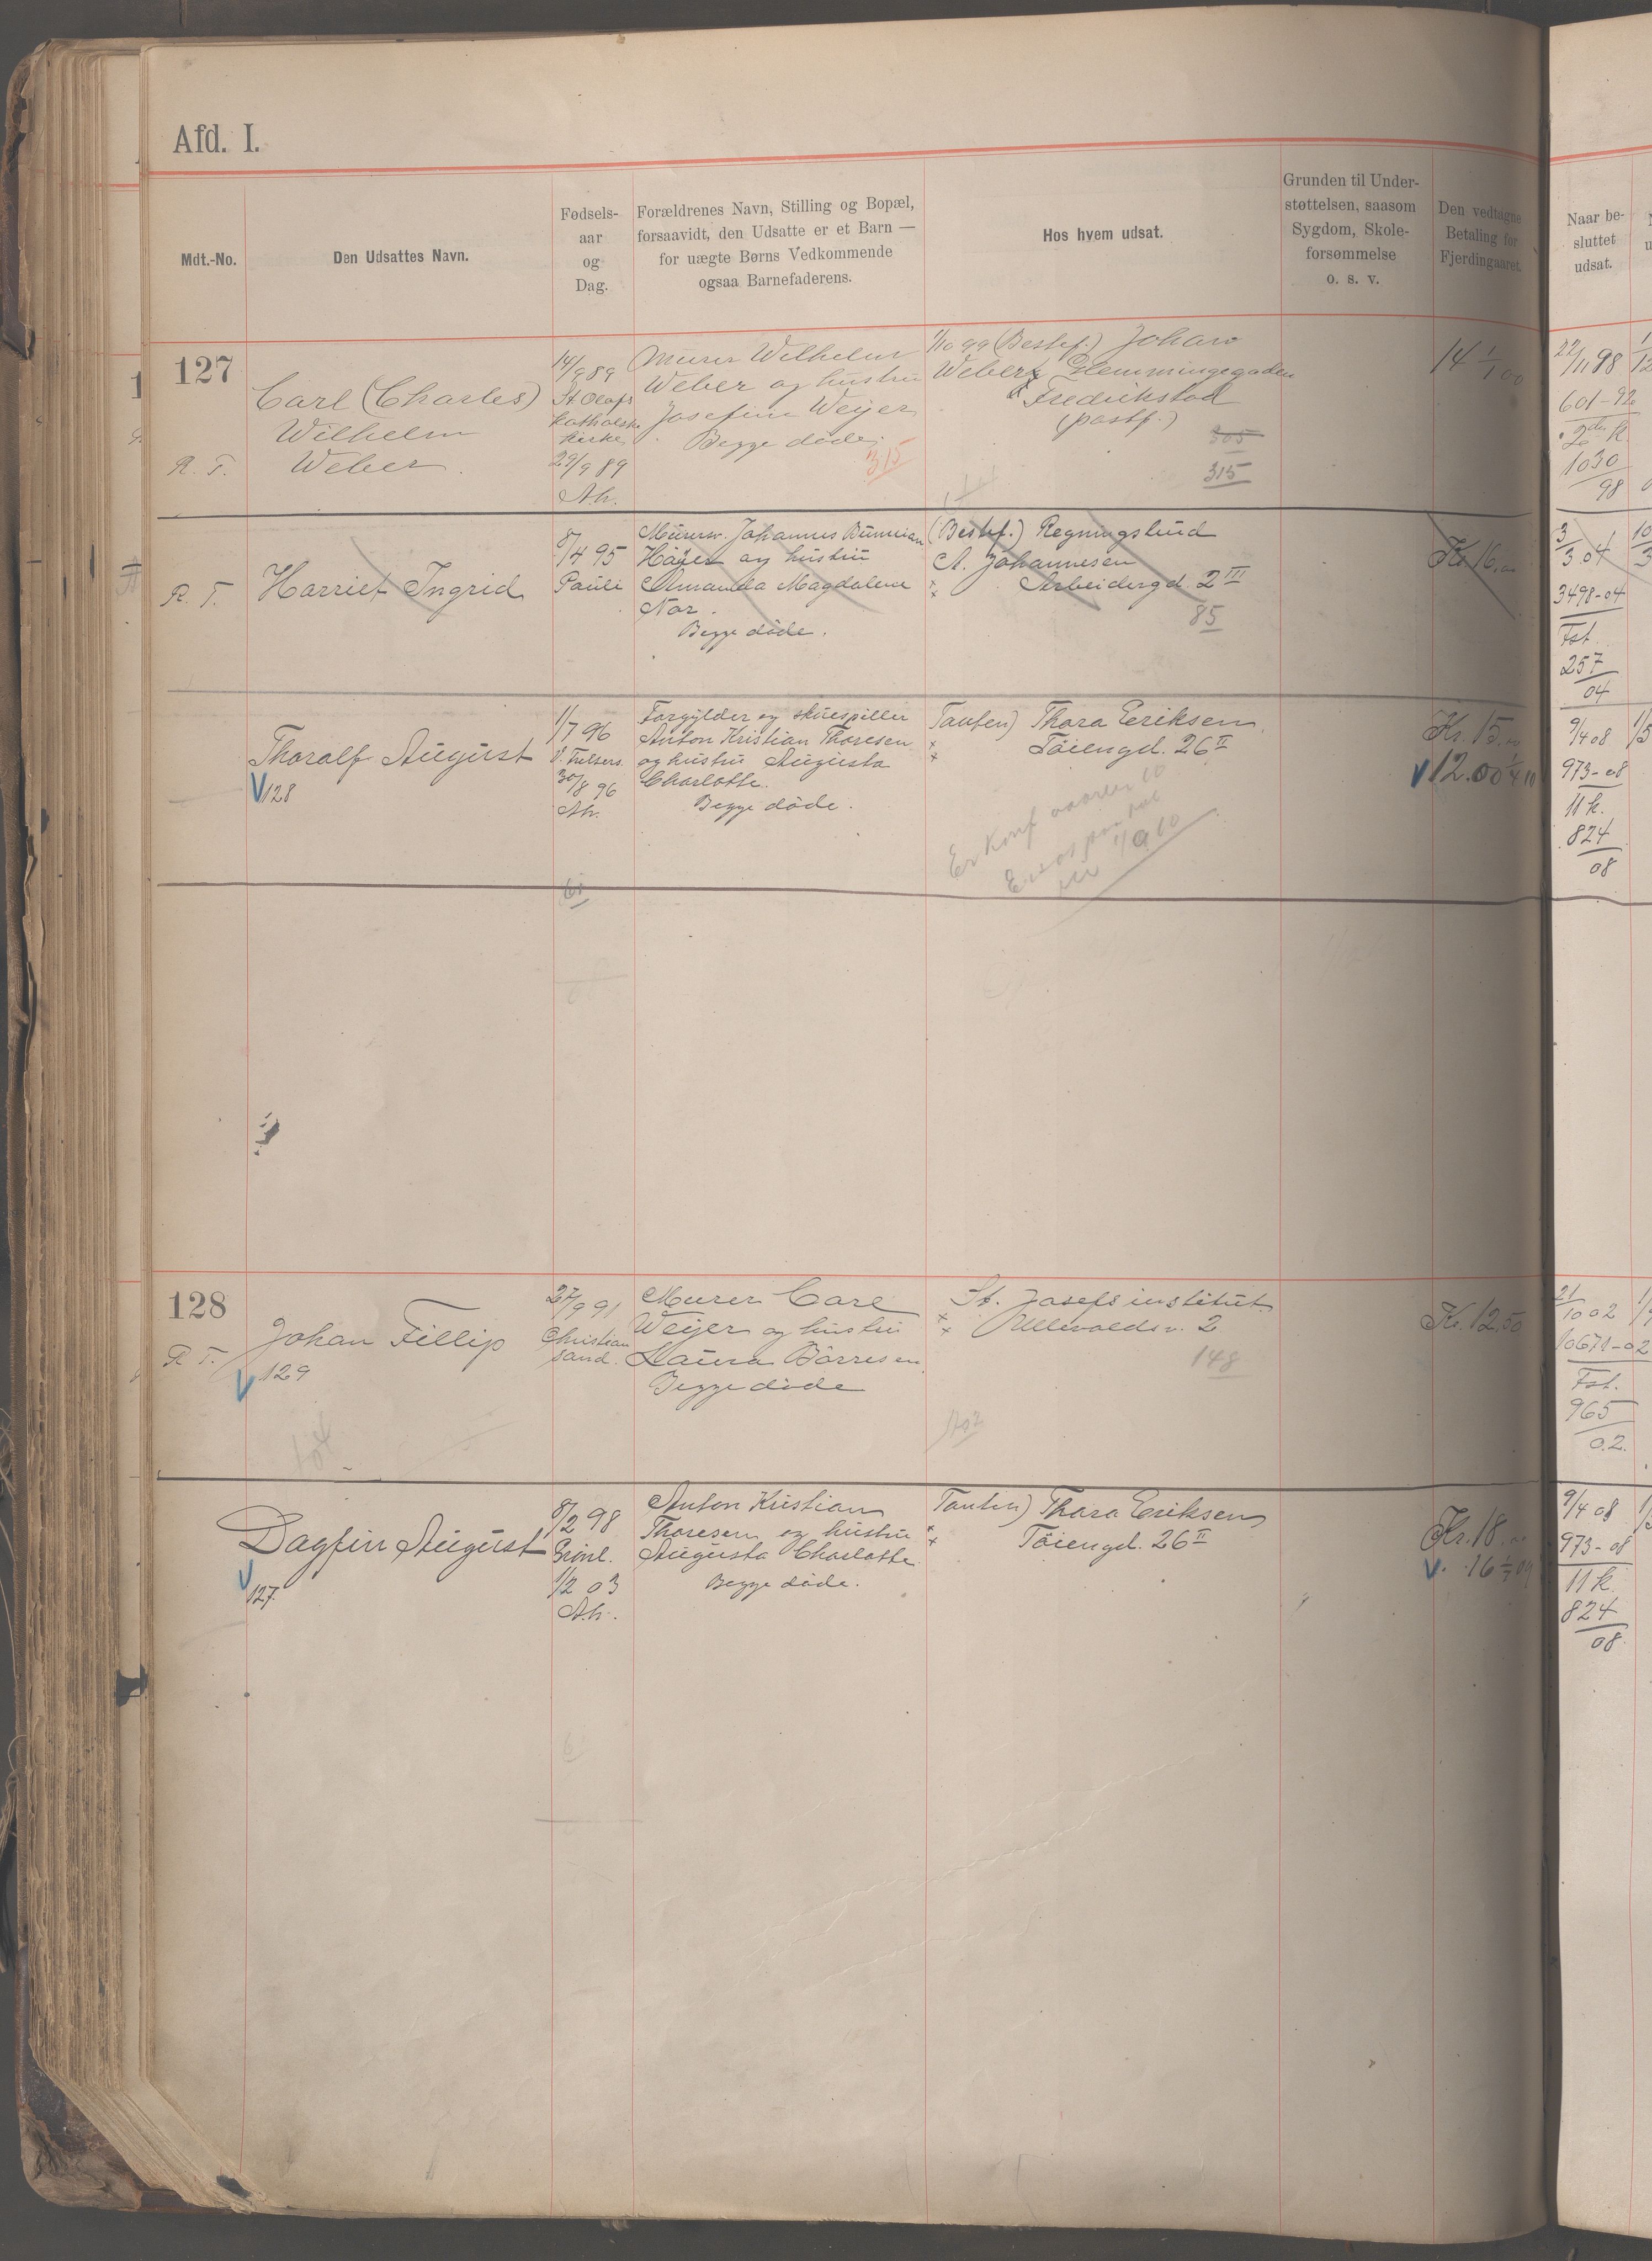 Afd. I.
Mdt.-No.
Den Udsattes Navn.
Fødsels-
aar
og
Dag.
Forældrenes Navn, Stilling og Bopæl,
forsaavidt, den Udsatte er et Barn —
for uægte Børns Vedkommende
ogsaa Barnefaderens.
Hos hvem udsat.
Grunden til Under-
støttelsen, saasom
Sygdom, Skole-
forsømmelse
o. s. v.
Den vedtagne
Betaling for
Fjerdingaaret.
Naar be-
sluttet
udsat.
127
R. T.
Carl (Charles)
Wilhelm
Weber
14/9 89
St Olafs
Katholske
kirke
29/9 89
Ah.
Murer Wilhelm
Weber og hustru
Josefine Weijer
Begge døde.
315
1/10 99 (Bestef.) Johan
Weber, Glemmingegaden
Fredrikstad
(postf.)
305
315
14 1/1 00
22/11 98
601-92
2den k.
1030
98
R. T.
Harriet Ingrid
8/4 95
Pauli
Murersv. Johannes
Høyer og hustru
Amanda Magdalene
Nor.
Begge døde.
(Bestef.) Regningsbud
A. Johannesen
Arbeidergd. 2 III
85
Kr. 16.
3/3 04
3498-04
Fat.
257
04
Thoralf August
V 128
1/7 96
V. Frelsers.
30/8 96
Ah.
Forgylder og skuespiller
Anton Kristian Thoresen
og hustru Augusta
Charlotte.
Begge døde.
Tanten) Thora Eriksen
Töiengd. 26 II
Er konf
Kr. 15.
V 12.00 1/4 10
9/4 08
973-08
11 k.
824
08
128
R. T.
Johan Fillip
V 129
27/9 91
Christian
sand.
Murer Carl
Weijer og hustru
Laura Børresen
Begge døde
St. Josefs institut
Ullevoldsv. 2
148
Kr. 12.50
21/10 02
10671-02
Fat.
965
02.
Dagfin August
V 127.
8/2 98
Grönl.
1/2 03
Ah.
Anton Kristian
Thoresen og hustru
Augusta Charlotte
Begge døde.
Tanten) Thora Eriksen
Töiengd. 26 II
Kr. 18.
V. 16 1/7 09
9/4 08
973-08
11 k.
824
08.